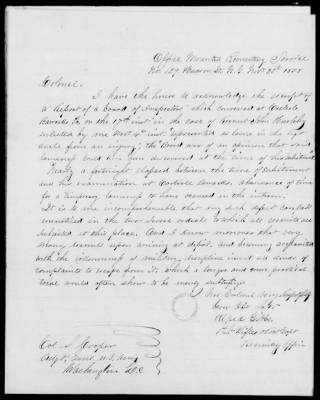 Office Mounted Recruiting Service
No. 129 St. N. Y. Novr 30th 1858
Colonel.
I have the honor to acknowledge the receipt of
a "Report of a board of Inspection" which convened at Carlisle
Barracks Pa. on the 17th inst. in the case of Recruit John
enlisted by me Novr 4th inst. represented as lame in the left
from an injury; the Board are of an opinion that said
lameness could have been discovered at the time of his enlistment
Nearly a fortnight elapsed between the time of enlistment
and his examination at Carlisle Barracks, abundance of time
for a temporary lameness to have ensued in the interim,
It is to me inconceivable that any such defect could have
in the two severe ordeals to which all recruits are
subjected at this place. And I know moreover that very
many recruits upon arriving at depot, and becoming acquainted
with the of military discipline invent all kinds of
complaints to escape from it, which a longer and more practical
trial would often show to be mere
I am Colonel Very Respectfully
Your Obt Servt
1st Lt. Rifles
Recruiting Officer
Col. S. Cooper
Adjt. Genl. U.S. Army
Washington D.C.